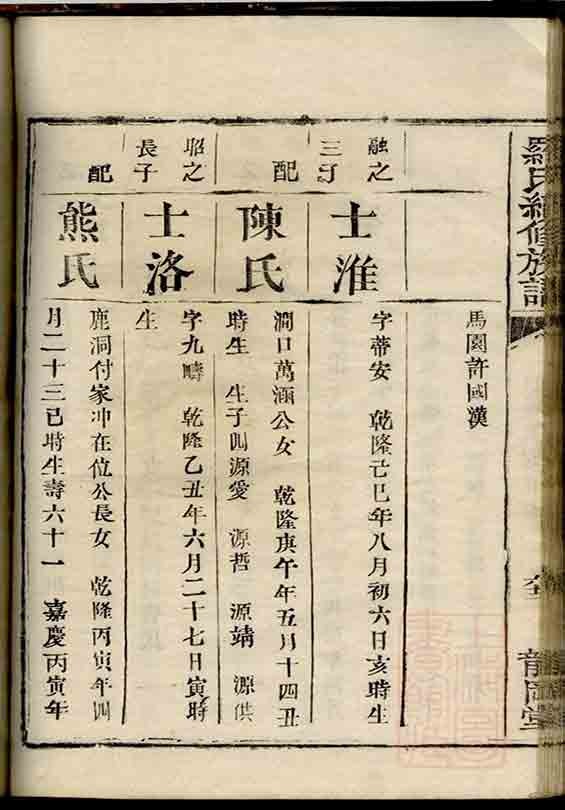 羅氏續修族譜
馬園許國漢
融之
三子
士淮
字蒂安 乾隆己巳年八月初六日亥時生
配
陳氏
澗口萬涵公女 乾隆庚午年五月十四丑
時生 生子四源愛 源哲 源靖 源供
昭之
長子
士洛
字九疇 乾隆乙丑年六月二十七日寅時
生
配
熊氏
鹿洞付家冲在位公長女 乾隆丙寅年四
月二十三巳時生壽六十一 嘉慶丙寅年